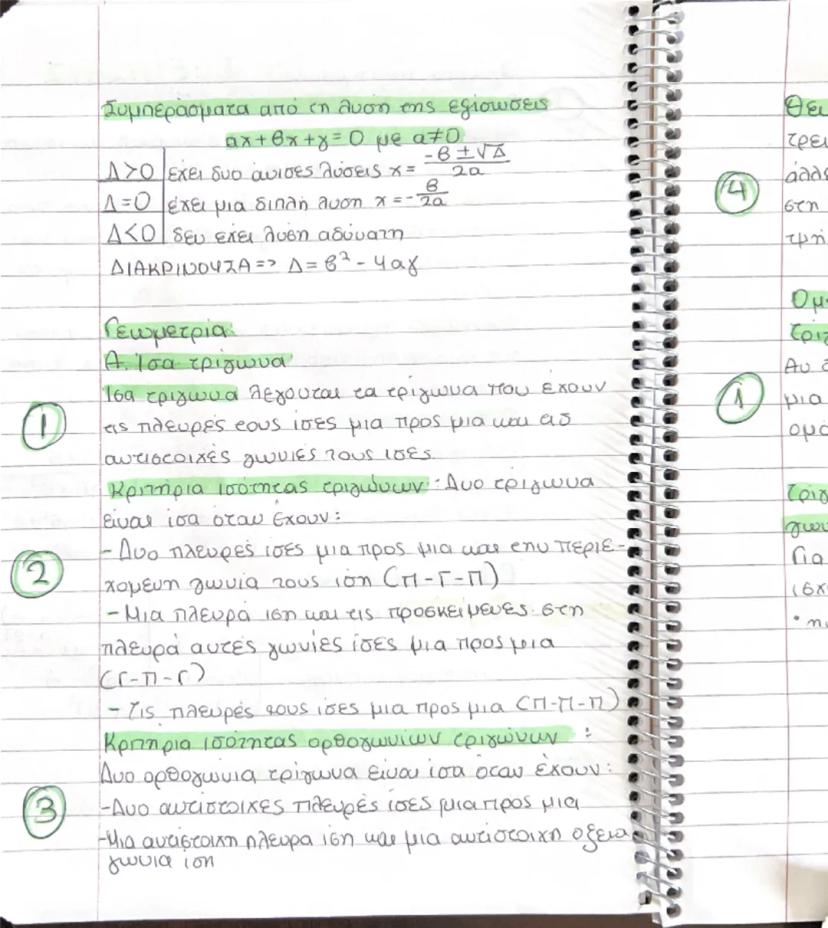 Συμπεράσματα από τη λυση της εξισωσεις
αx+βx+γ=0 με α≠0
Δ>0 έχει δυο άνισες λύσεις x= -β±√Δ / 2α
Δ=0 έχει μια διπλή λυση x=- β / 2α
Δ<0 δεν εχει λυση αδύνατη
ΔΙΑΚΡΙΝΟΥΣΑ=> Δ=β²-4αγ
Γεωμετρία
Α. Ίσα τρίγωνα
① Ίσα τρίγωνα λέγονται τα τρίγωνα που έχουν
τις πλευρές τους ίσες μια προς μια και
αντιστοιχές γωνίες τους ισες
Κριτήρια ισότητας τριγώνων: Δυο τρίγωνα
είναι ίσα όταν έχουν:
② -Δυο πλευρές ίσες μια προς μια και την περιε-
χομενη γωνία τους ιση (Π-Γ-Π)
-Μια πλευρά ιση και τις προσκείμενες στη
πλευρά αυτές γωνίες ίσες μια προς μια
(Γ-Π-Γ)
-Τις πλευρές τους ίσες μια προς μια (Π-Π-Π)
Κριτηρια ισότητας ορθογωνίων τριγώνων :
Δυο ορθογώνια τρίγωνα είναι ίσα όταν έχουν:
③ -Δυο αντίστοιχες πλευρές ίσες μια προς μια
-Μια αντίστοιχη πλευρα ιση και μια αντίστοιχη οξεια
γωνια ιση
④
στη
①
Αν
μια
Για